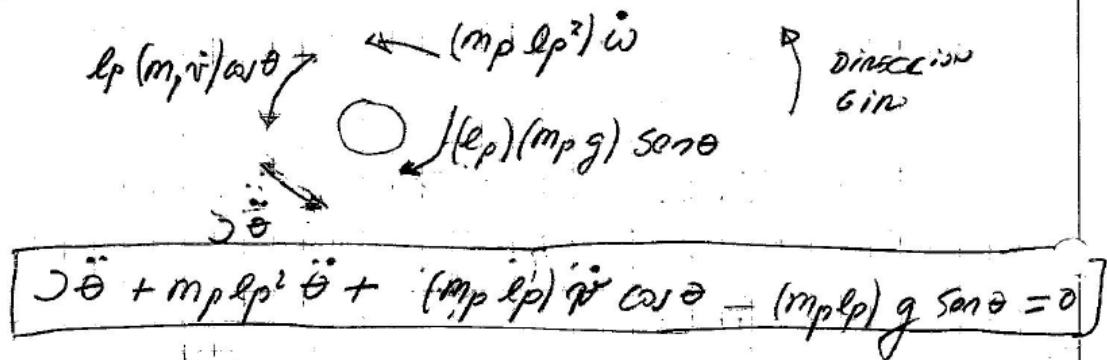 (mp lp²) ω̇
lp (mp v̇) cos θ
DIRECCION
GIRO
(lp)(mp g) sen θ
J θ̈
J θ̈ + mp lp² θ̈ + (mp lp) v̇ cos θ − (mp lp) g sen θ = 0